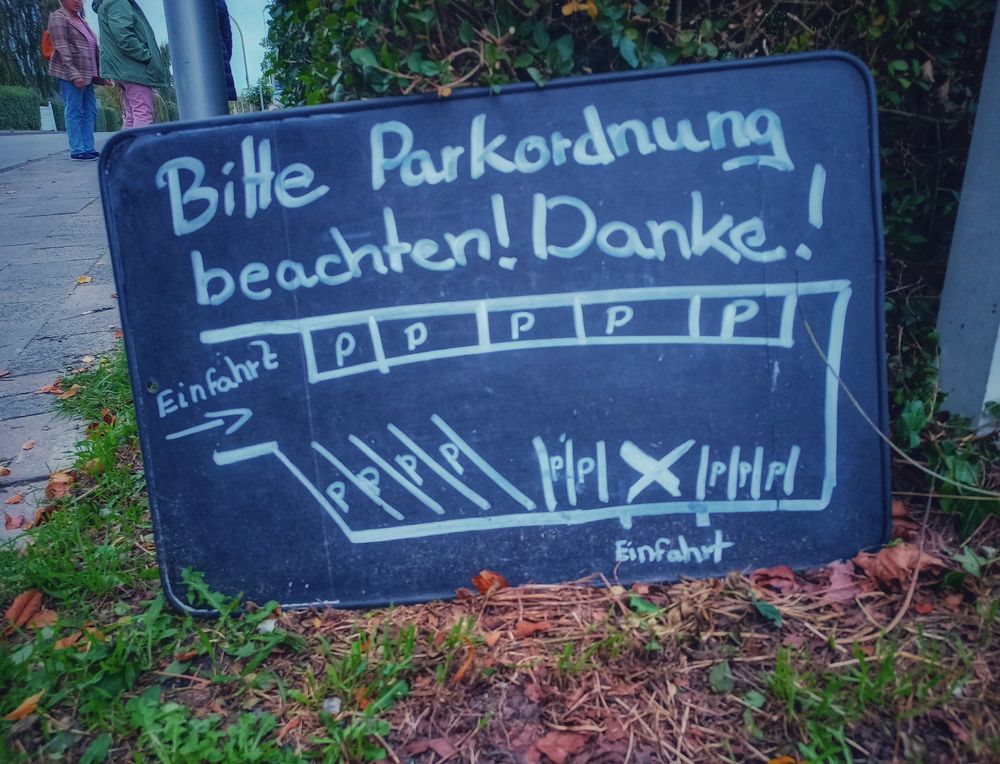 Bitte Parkordnung
beachten! Danke!
P P P P P
Einfahrt
P P P P P P X P P P
Einfahrt